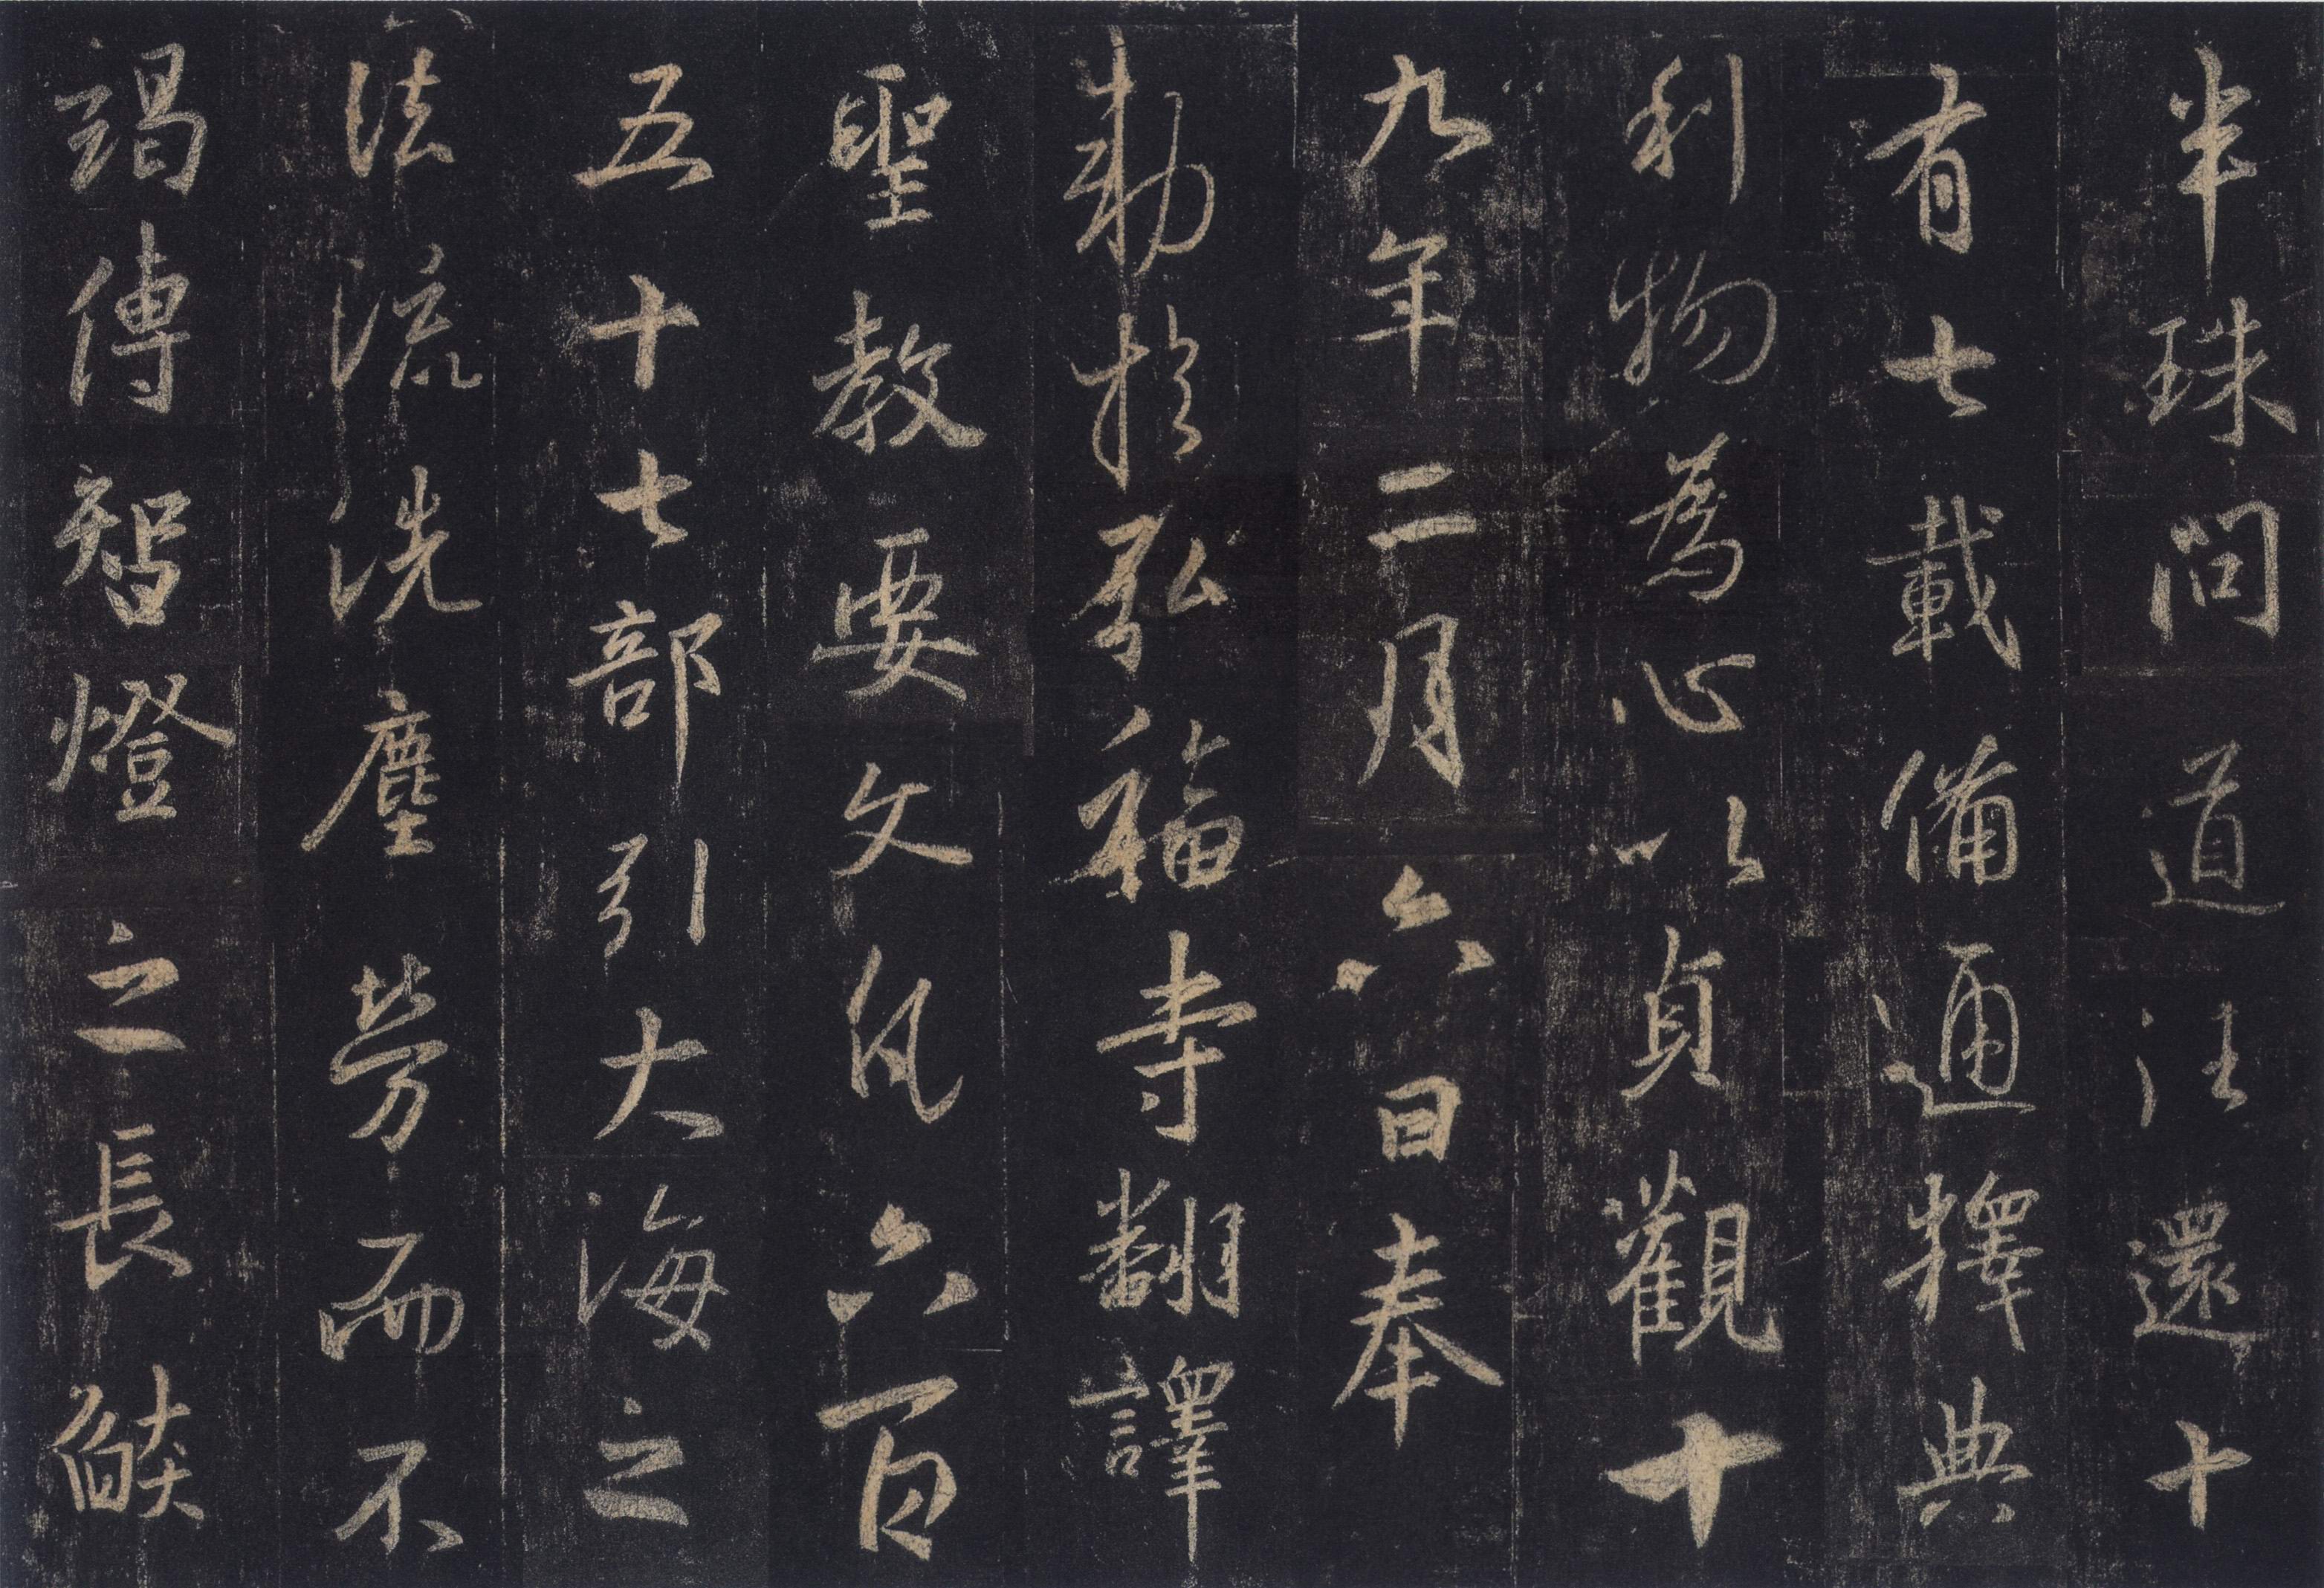 半珠問道往還十
有七載備通釋典
利物為心以貞觀十
九年二月六日奉
勅於弘福寺翻譯
聖教要文凡六百
五十七部引大海之
法流洗塵勞而不
竭傳智燈之長燄